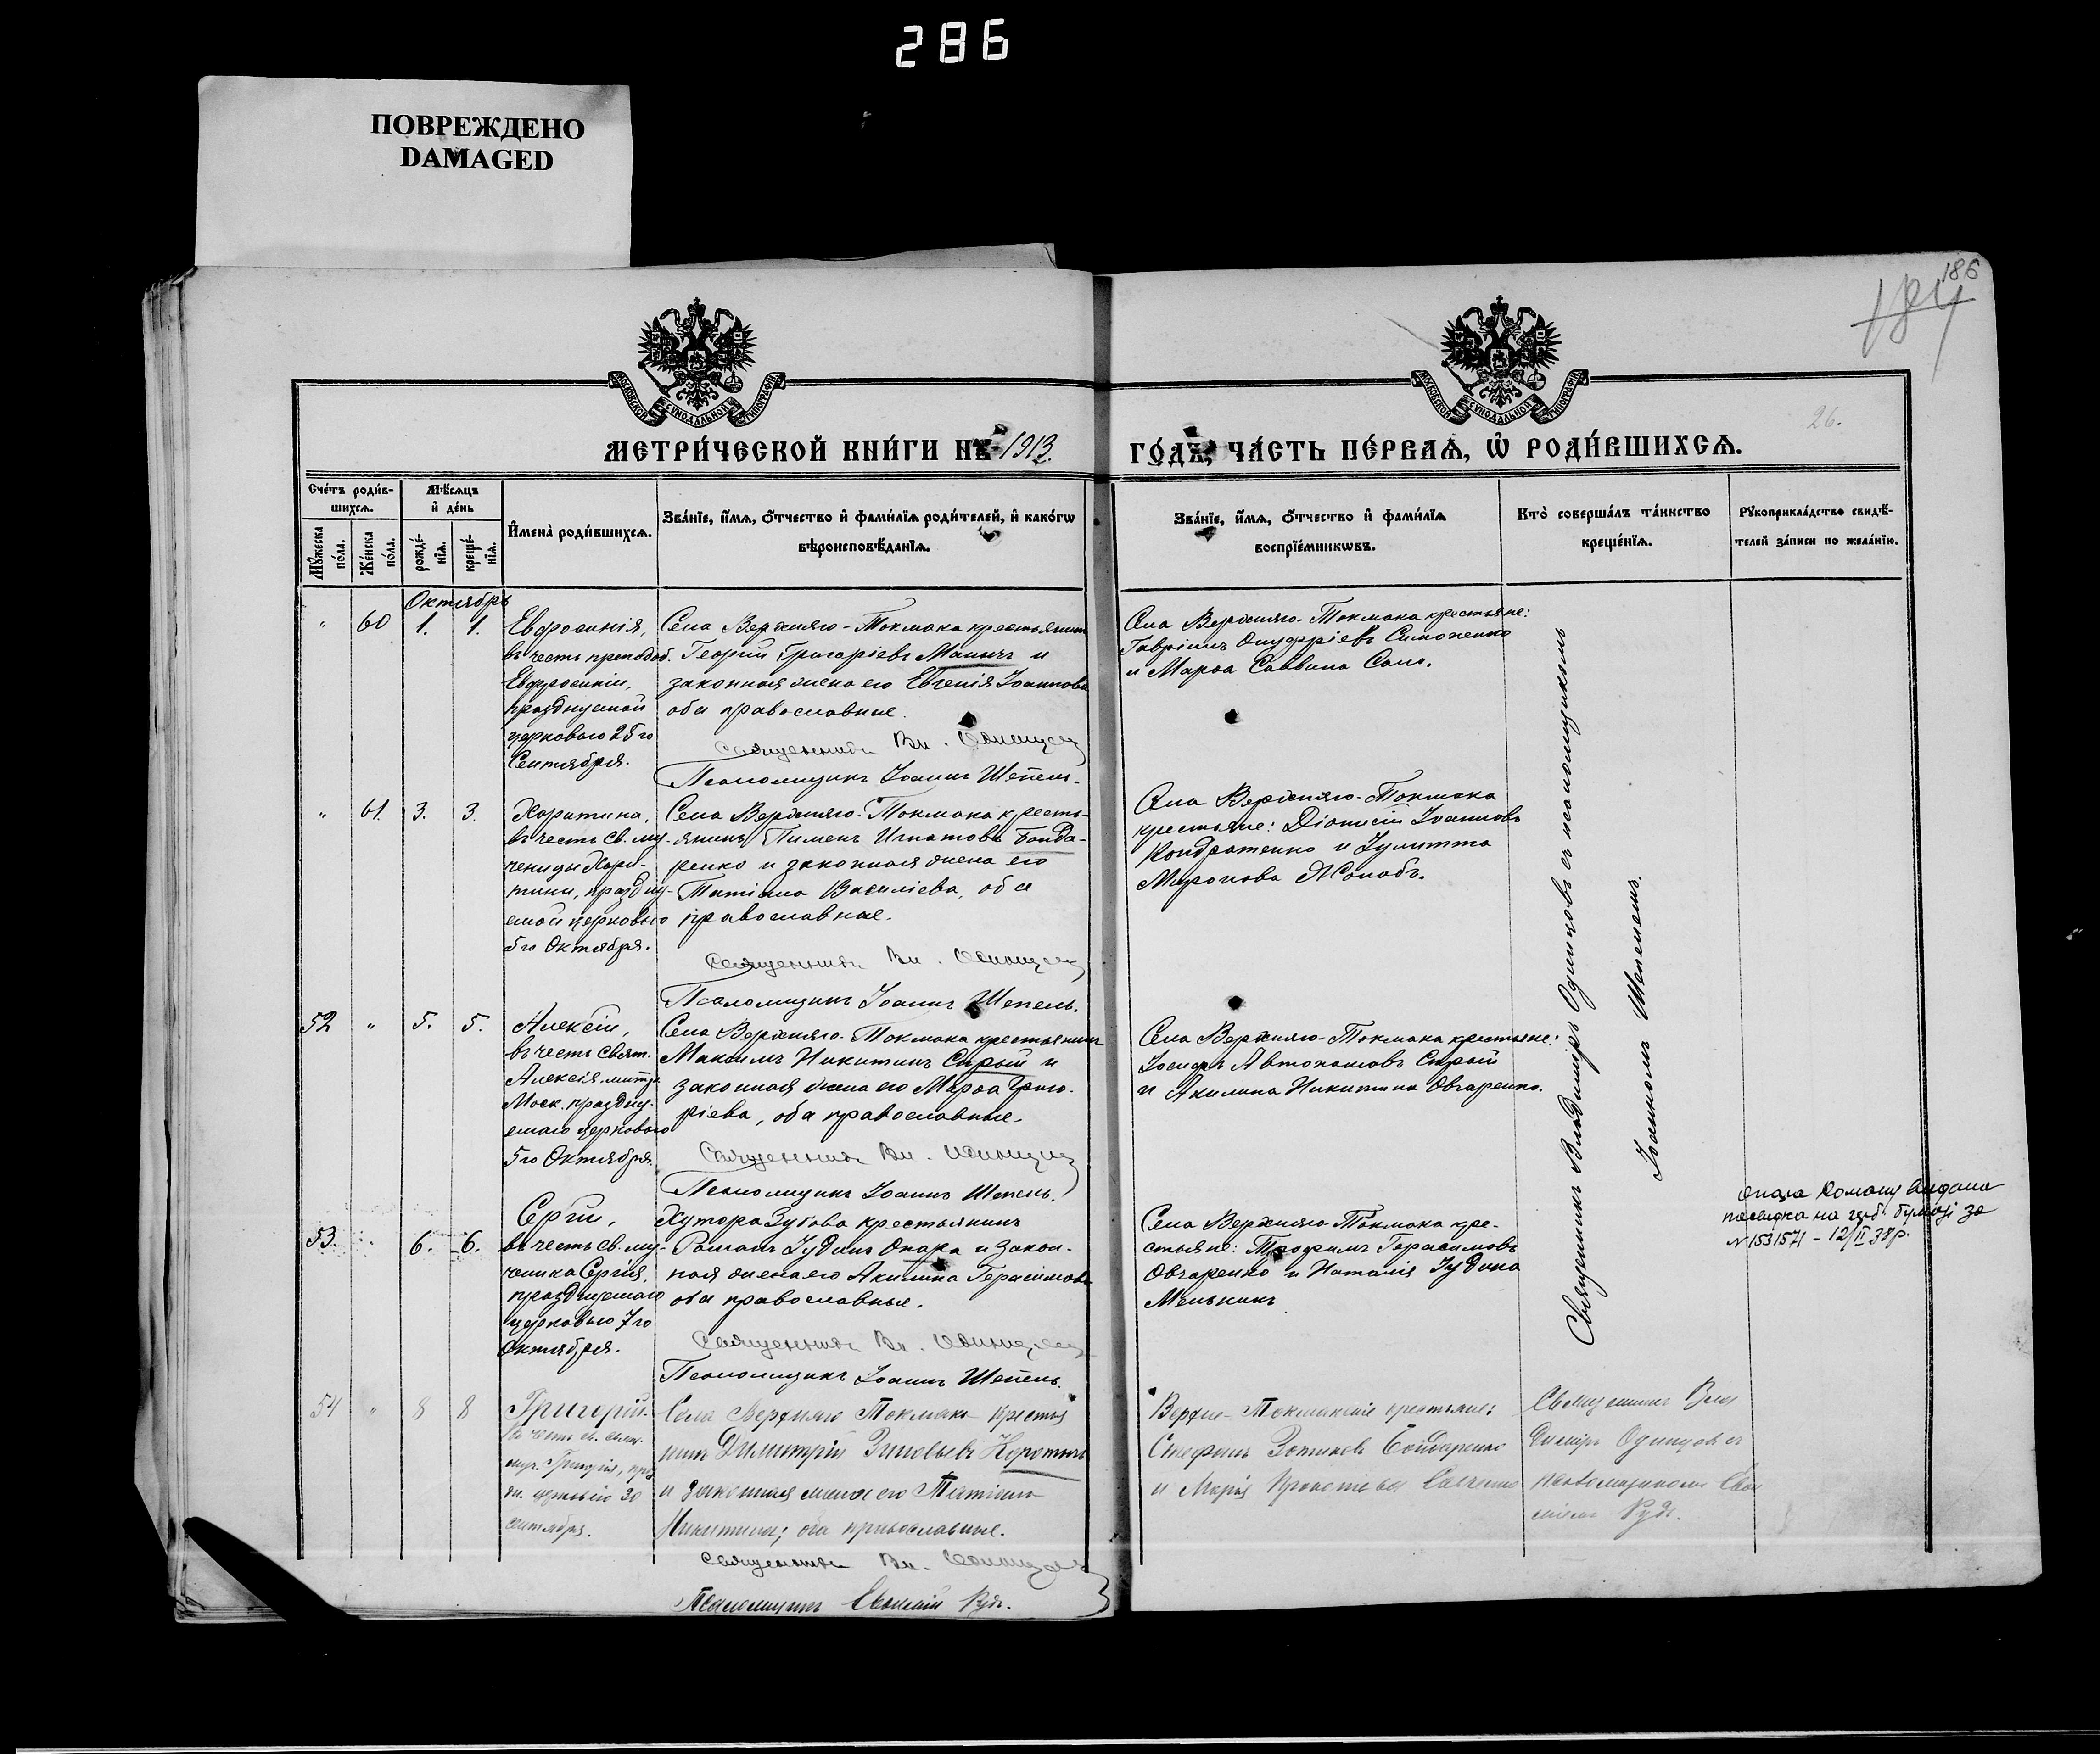 286
ПОВРЕЖДЕНО
DAMAGED
186
184
26.
МОСКОВСКОЙ СѴНОДАЛЬНОЙ ТИПОГРАФІИ
МОСКОВСКОЙ СѴНОДАЛЬНОЙ ТИПОГРАФІИ
МЕТРИ́ЧЕСКОЙ КНИ́ГИ НА 1913.
ГО́ДЪ, ЧА́СТЬ ПЕ́РВАѦ, Ѡ҆ РОДИ́ВШИХСѦ.
Сче́тъ роди́в-
шихсѧ.
Мꙋ́жеска по́ла.
Же́нска по́ла.
Мѣ́сѧцъ
и҆ де́нь
рожде́-
нїѧ.
креще́-
нїѧ.
И҆мена̀ роди́вшихсѧ.
Зва́нїе, и҆́мѧ, ѻ҆́тчество и҆ фами́лїѧ роди́телей, и҆ како́гѡ
вѣроисповѣ́данїѧ.
Зва́нїе, и҆́мѧ, ѻ҆́тчество и҆ фами́лїѧ
воспрїе́мникѡвъ.
Кто̀ соверша́лъ та́инство
креще́нїѧ.
Рꙋкоприкла́дство свидѣ́-
телей за́писи по жела́нїю.
Октябрь
" 60 1. 1.
Евфросинія,
въ честь преподоб.
Евфросиніи,
празднуемой
церковью 25го
Сентября.
Села Верхняго-Токмака крестьянинъ
Георгій Григоріевъ Малычъ и
законная жена его Евгенія Іоаннова
оба православные.
Священникъ Вл. Одинцовъ
Псаломщикъ Іоаннъ Шепель.
Села Верхняго-Токмака крестьяне:
Гавріилъ Онуфріевъ Симоненко
и Марѳа Саввина Сало.
" 61. 3. 3.
Харитина,
въ честь св. му-
ченицы Хари-
тины, праздну-
емой церковью
5го Октября.
Села Верхняго-Токмака кресть-
янинъ Пименъ Игнатовъ Бонда-
ренко и законная жена его
Татіана Василіева, оба
православные.
Священникъ Вл. Одинцовъ
Псаломщикъ Іоаннъ Шепель.
Села Верхняго-Токмака
крестьяне: Діонисій Іоанновъ
Кондратенко и Іулитта
Миронова Жолобъ.
52 " 5. 5.
Алексій,
въ честь Свят.
Алексія митр.
Моск. праздну-
емаго церковью
5го Октября.
Села Верхняго-Токмака крестьянинъ
Максимъ Никитинъ Сирый и
законная жена его Марѳа Григо-
ріева, оба православные.
Священникъ Вл. Одинцовъ
Псаломщикъ Іоаннъ Шепель.
Села Верхняго-Токмака крестьяне:
Іосифъ Автономовъ Сирый
и Акилина Никитина Овчаренко.
53. " 6. 6.
Сергій,
въ честь св. му-
ченика Сергія,
празднуемаго
церковью 7го
Октября.
Хутора Зубова крестьянинъ
Романъ Іудинъ Опара и закон-
ная жена его Акилина Герасимова
оба православные.
Священникъ Вл. Одинцовъ
Псаломщикъ Іоаннъ Шепель.
Села Верхняго-Токмака кре-
стьяне: Трофимъ Герасимовъ
Овчаренко и Наталія Іудина
Мельникъ
Священникъ Владиміръ Одинцовъ съ псаломщикомъ
Іоанномъ Шепелемъ.
Опара Роману видана
на гerб. бумазі за
N 1531571 - 12/II 38р.
54 " 8 8
Григорій.
Въ честь св. свящ.
муч. Григорія, праз
дн. церковью 30
сентября.
Села Верхняго Токмака кресть
нинъ Димитрій Зиновьевъ Коротычъ
и законная жена его Татіана
Никитина; оба православные.
Священникъ Вл. Одинцовъ
Псаломщикъ Евфимій Рудь.
Верхне-Токмакскіе крестьяне:
Стефанъ Зотиковъ Бондаренко
и Марія
Священникъ Вла
диміръ Одинцовъ съ
псаломщикомъ Евѳи
міемъ Рудь.